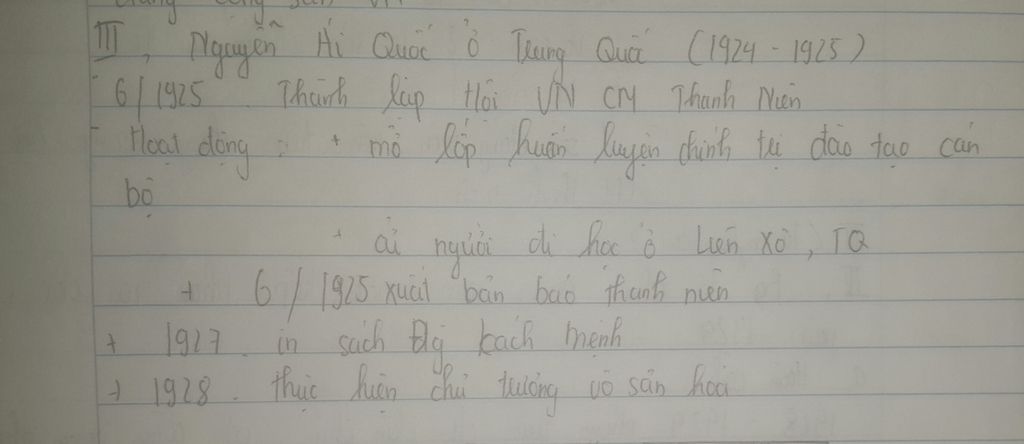 Đảng cộng sản VN
III, Nguyễn Ái Quốc ở Trung Quốc (1924 - 1925)
- 6/1925. Thành lập Hội VN CM Thanh Niên
- Hoạt động : + mở lớp huấn luyện chính trị đào tạo cán
bộ
+ cử người đi học ở Liên Xô, TQ
+ 6/1925 xuất bản báo thanh niên
+ 1927. in sách Đg kách mệnh
+ 1928. thực hiện chủ trương vô sản hoá